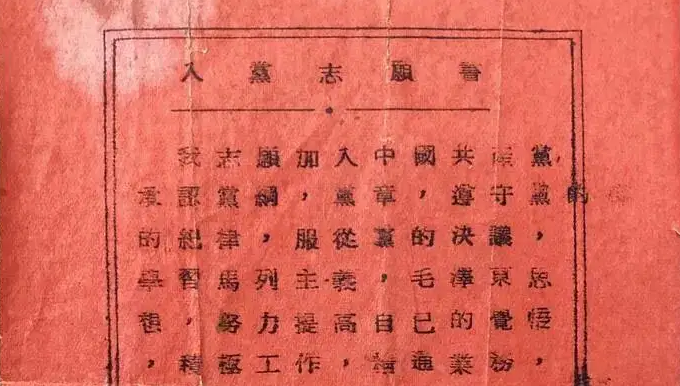 入黨志願書
我志願加入中國共產黨，
承認黨綱，黨章，遵守黨
的紀律，服從黨的決議，
學習馬列主義，毛澤東思
想，努力提高自己的覺悟
，積極工作，精通業務，